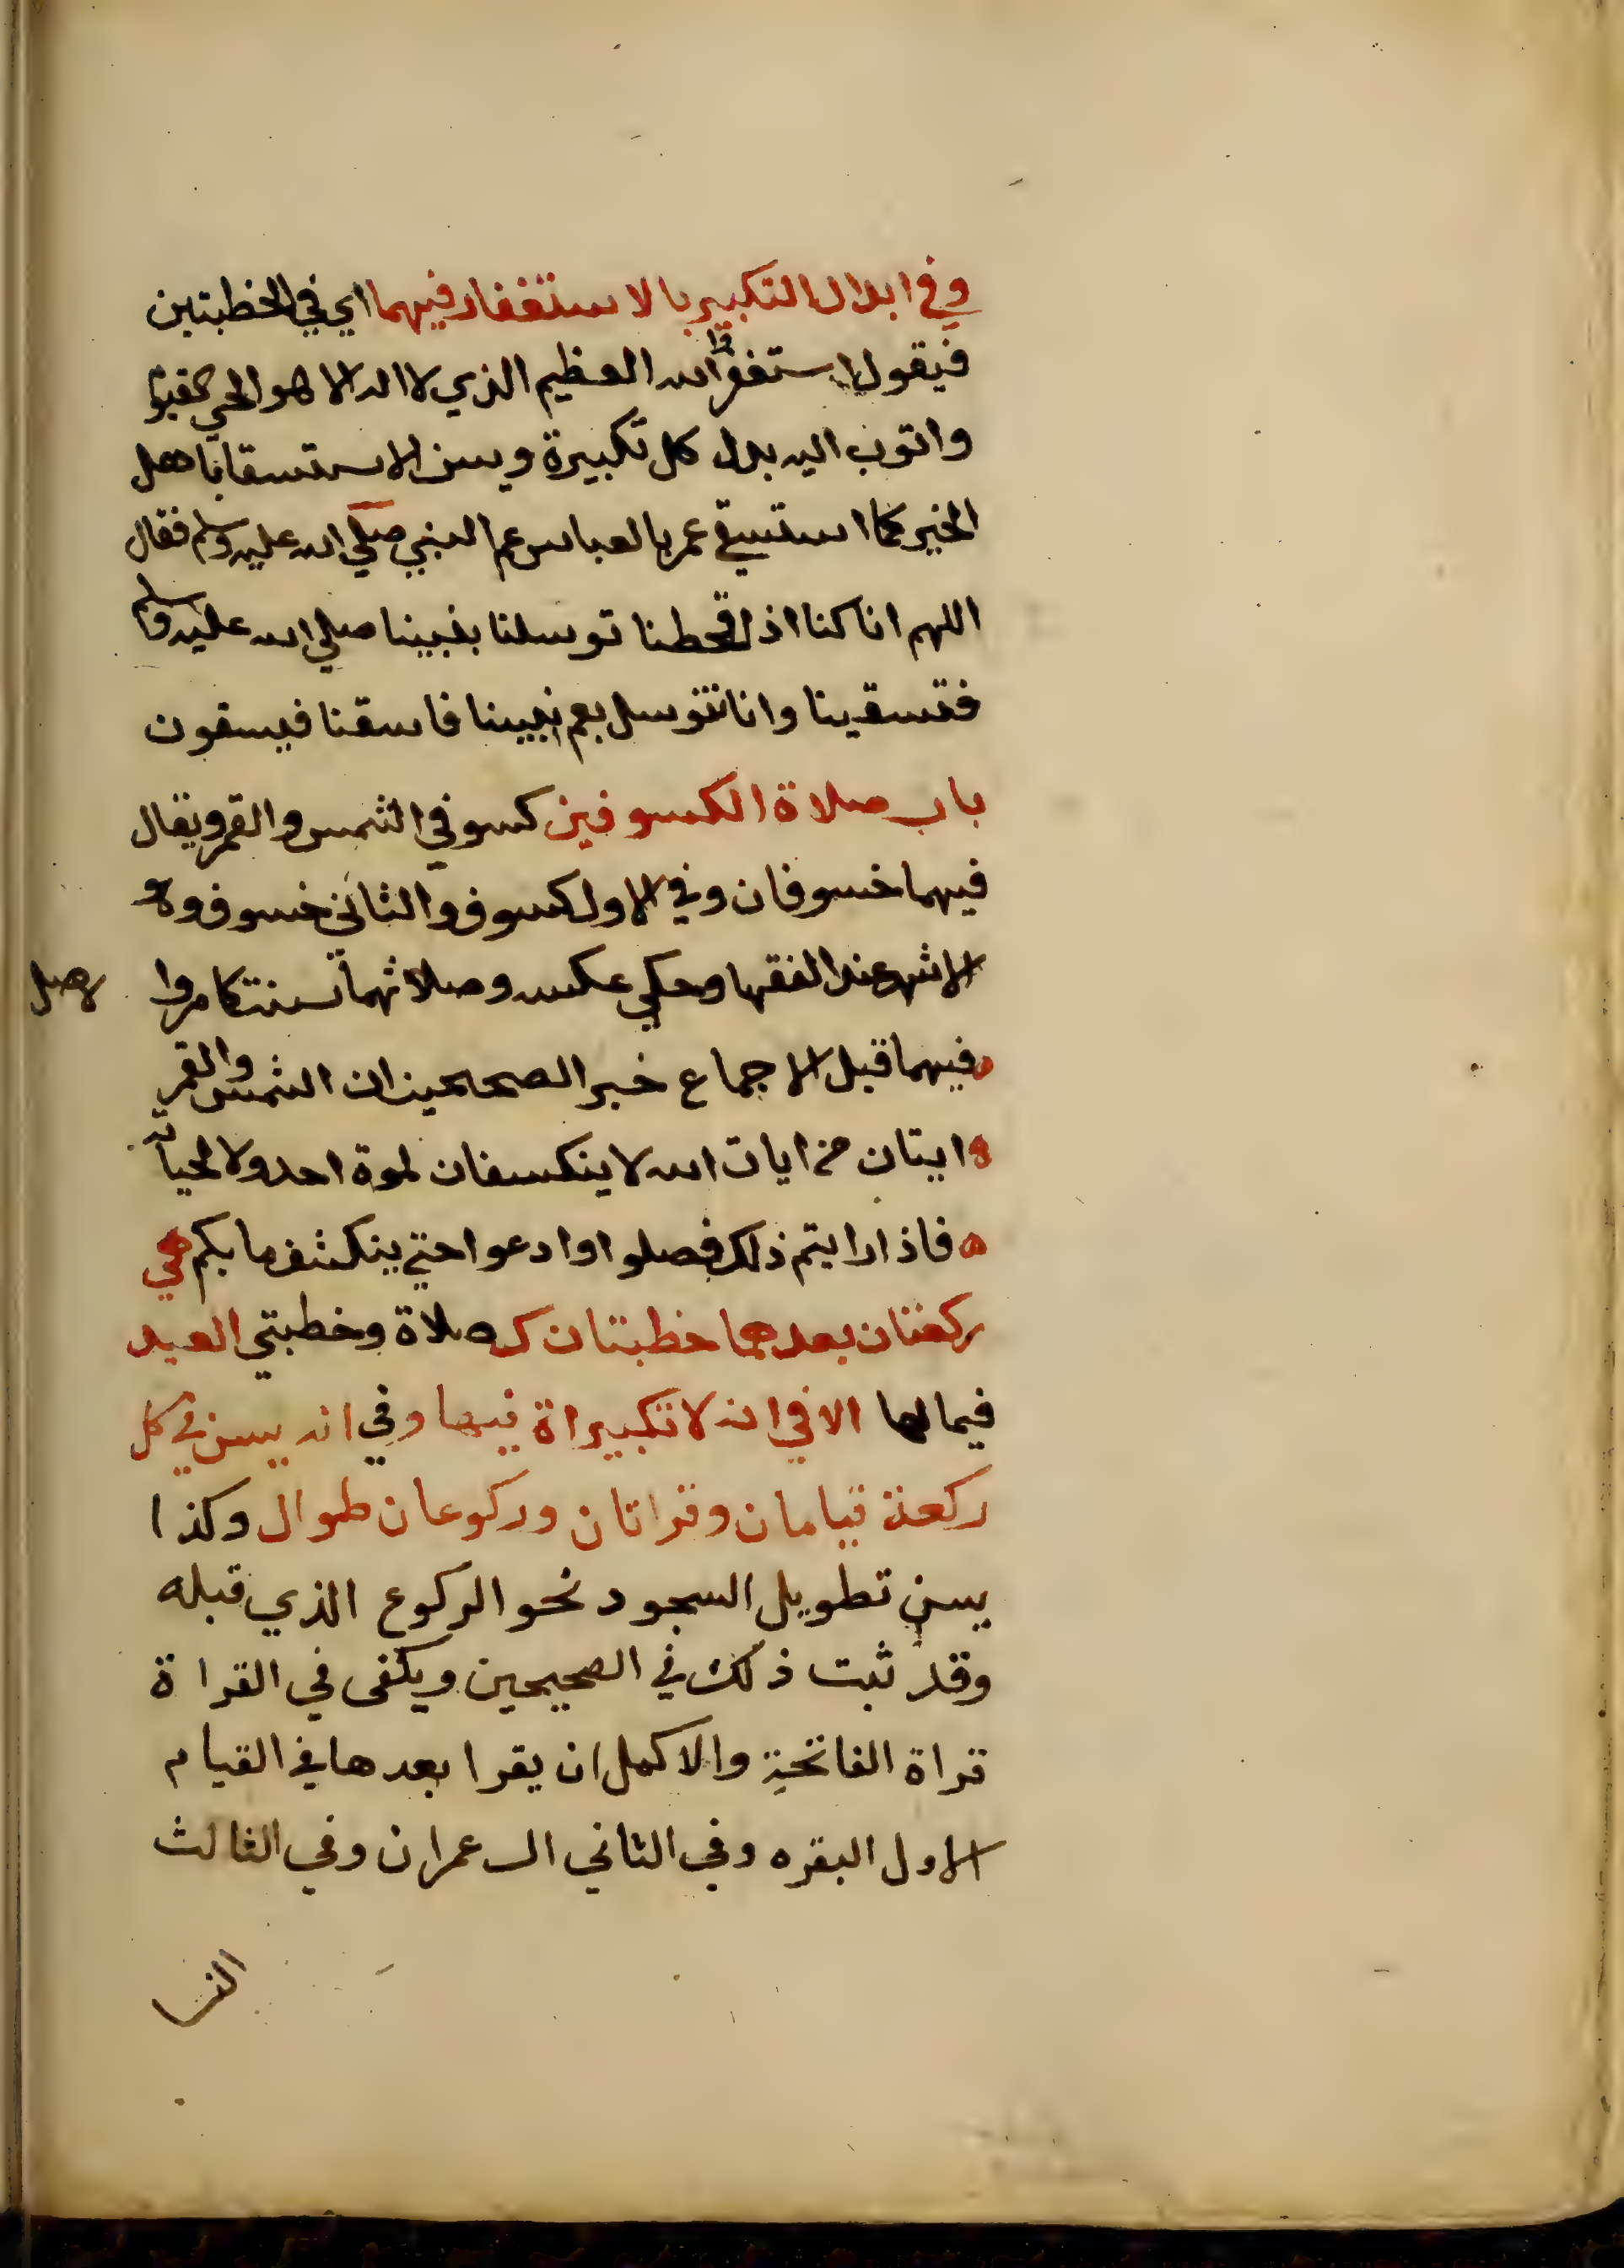 وفي ابدال التكبير بالاستغفار فيهما اي في الخطبتين
فيقول استغفر الله العظيم الذي لا اله الا هو الحي القيوم
واتوب اليه بدل كل تكبيرة ويسن الاستسقا باهل
الخير كما استسقي عمر بالعباس عم النبي صلي الله عليه وسلم فقال
اللهم انا كنا اذا قحطنا توسلنا بنبينا صلي الله عليه وسلم
فتسقينا وانا نتوسل بعم نبينا فاسقنا فيسقون
باب صلاة الكسوفين كسوفي الشمس والقمر ويقال
فيهما خسوفان وفي الاول كسوف والثاني خسوف وهو
الاشهر عند الفقها وحكي عكسه وصلاتهما سنتكامروا
لاصل
فيهما قبل الاجماع خبر الصحيحين ان الشمس والقمر
ايتان من ايات الله لا ينكسفان لموة احد ولا لحياته
فاذا رايتم ذلك فصلوا وادعوا حتي ينكشف ما بكم هي
ركعتان بعدهما خطبتان كـ صلاة وخطبتي العيد
فيما لهما الا في انه لا تكبيراة فيها وفي انه يسن في كل
ركعة قيامان وقراتان وركوعان طوال وكذا
يسن تطويل السجود نحو الركوع الذي قبله
وقد ثبت ذلك في الصحيحين ويكفى في القراة
قراة الفاتحة والاكمل ان يقرا بعدها في القيام
الاول البقره وفي الثاني ال عمران وفي الثالث
النسا